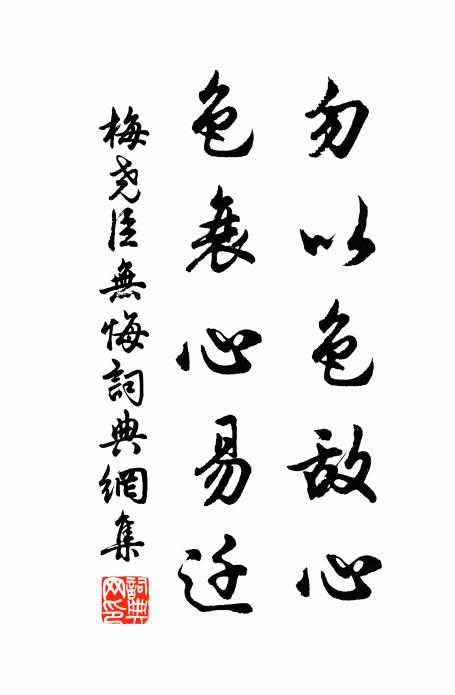 勿以色敌心
色衰心易迁
梅尧臣無悔詞典網集
詞典网印